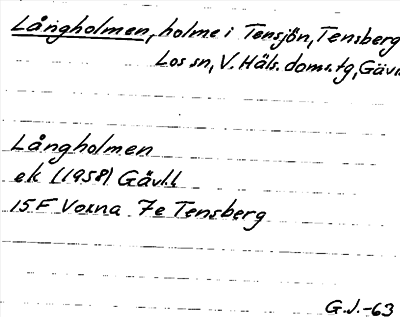 Långholmen, holme i Tensjön, Tensberg
Los sn, V. Häls. doms. tg, Gävl.
Långholmen
ek (1958) Gävl.l.
15 F Voxna 7e Tensberg
G.J.-63